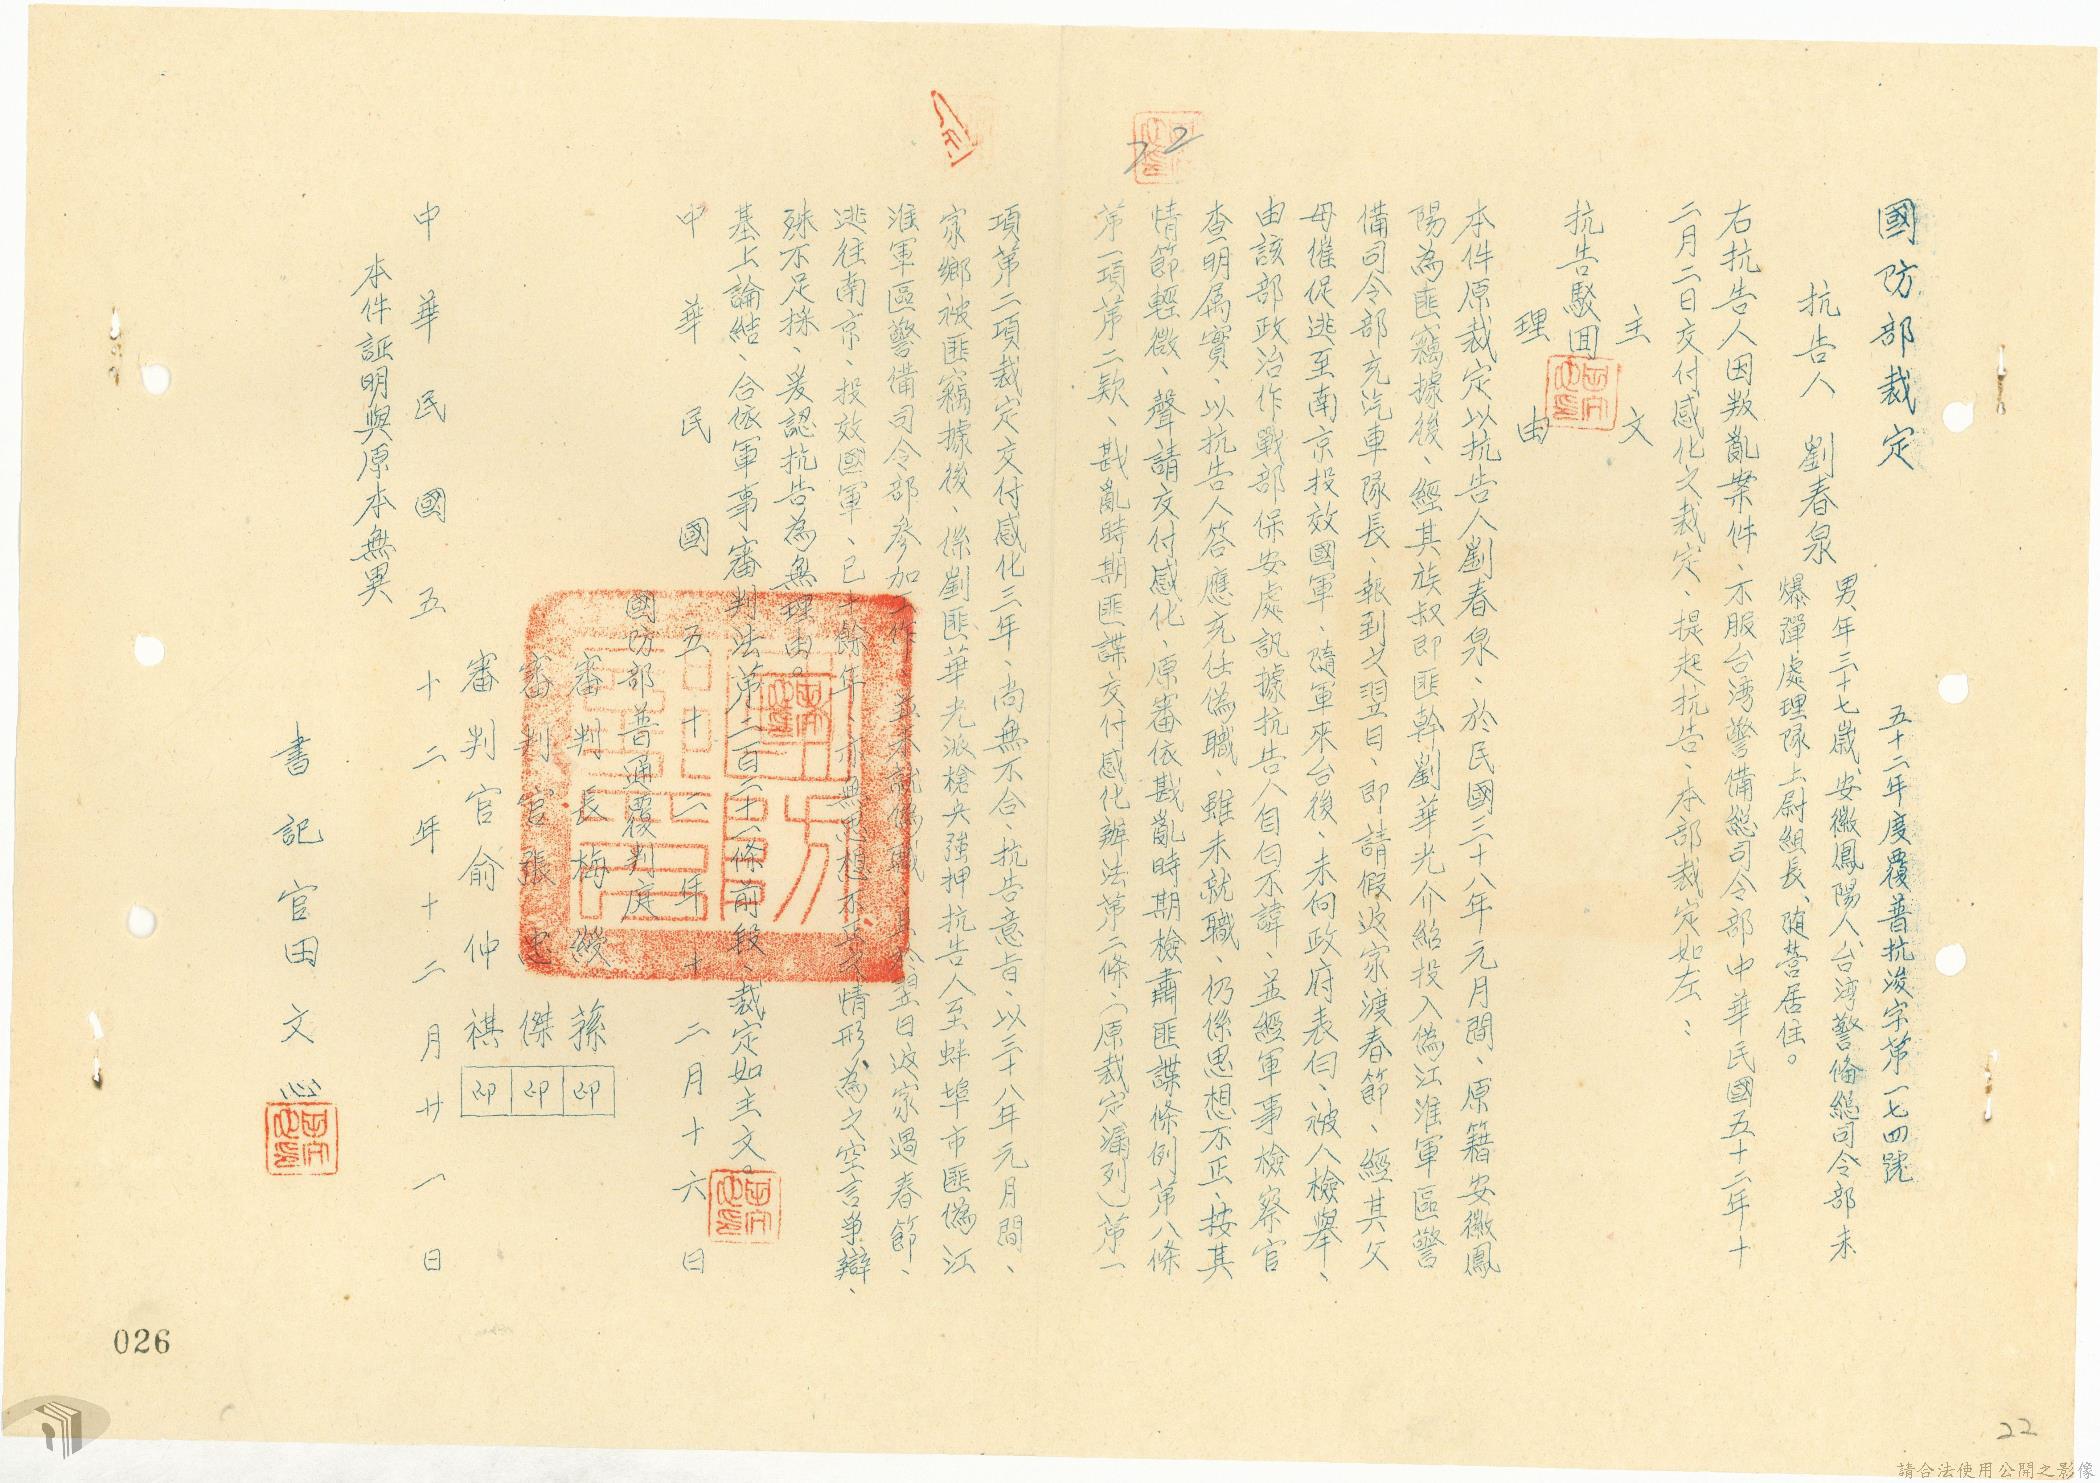 國防部裁定
五十二年度覆普抗浚字第一七四號
抗告人　劉春泉　男、年三十七歲、安徽鳳陽人、台湾警備總司令部未
爆彈處理隊上尉組長、随營居住。
右抗告人因叛亂案件、不服台湾警備総司令部中華民國五十二年十
二月二日交付感化之裁定、提起抗告、本部裁定如左：
主文
抗告駁囬
理由
本件原裁定以抗告人劉春泉、於民國三十八年元月間、原籍安徽鳳
陽為匪竊據後、經其族叔即匪幹劉華光介紹投入偽江淮軍區警
備司令部充汽車隊長、報到之翌日、即請假返家渡春節、經其父
母催促逃至南京投效國軍、隨軍來台後、未向政府表白、被人檢舉、
由該部政治作戰部保安處訊據抗告人自白不諱、並經軍事檢察官
查明属實、以抗告人答應充任偽職、雖未就職、仍係思想不正、按其
情節輕微、聲請交付感化、原審依戡亂時期檢肅匪諜條例第八條
第一項第二欵、戡亂時期匪諜交付感化辦法第二條、（原裁定漏列）第一
項第二項裁定交付感化三年、尚無不合、抗告意旨、以三十八年元月間、
家鄉被匪竊據後、係劉匪華光派槍夾強押抗告人至蚌埠市匪偽江
淮軍區警備司令部參加工作。並未就偽職、且於翌日返家過春節、
逃往南京、投效國軍、已十餘年、亦無思想不正之情形、為之空言爭辯、
殊不足採、爰認抗告為無理由。
基上論結、合依軍事審判法第二百二十一條前段、裁定如主文。
中華民國五十二年十二月十六日
國防部普通覆判庭
審判長梅綬蓀　印
審判官張　傑　印
審判官俞仲祺　印
中華民國五十二年十二月廿一日
本件証明與原本無異
書記官田文
22
026
22
請合法使用公開之影像